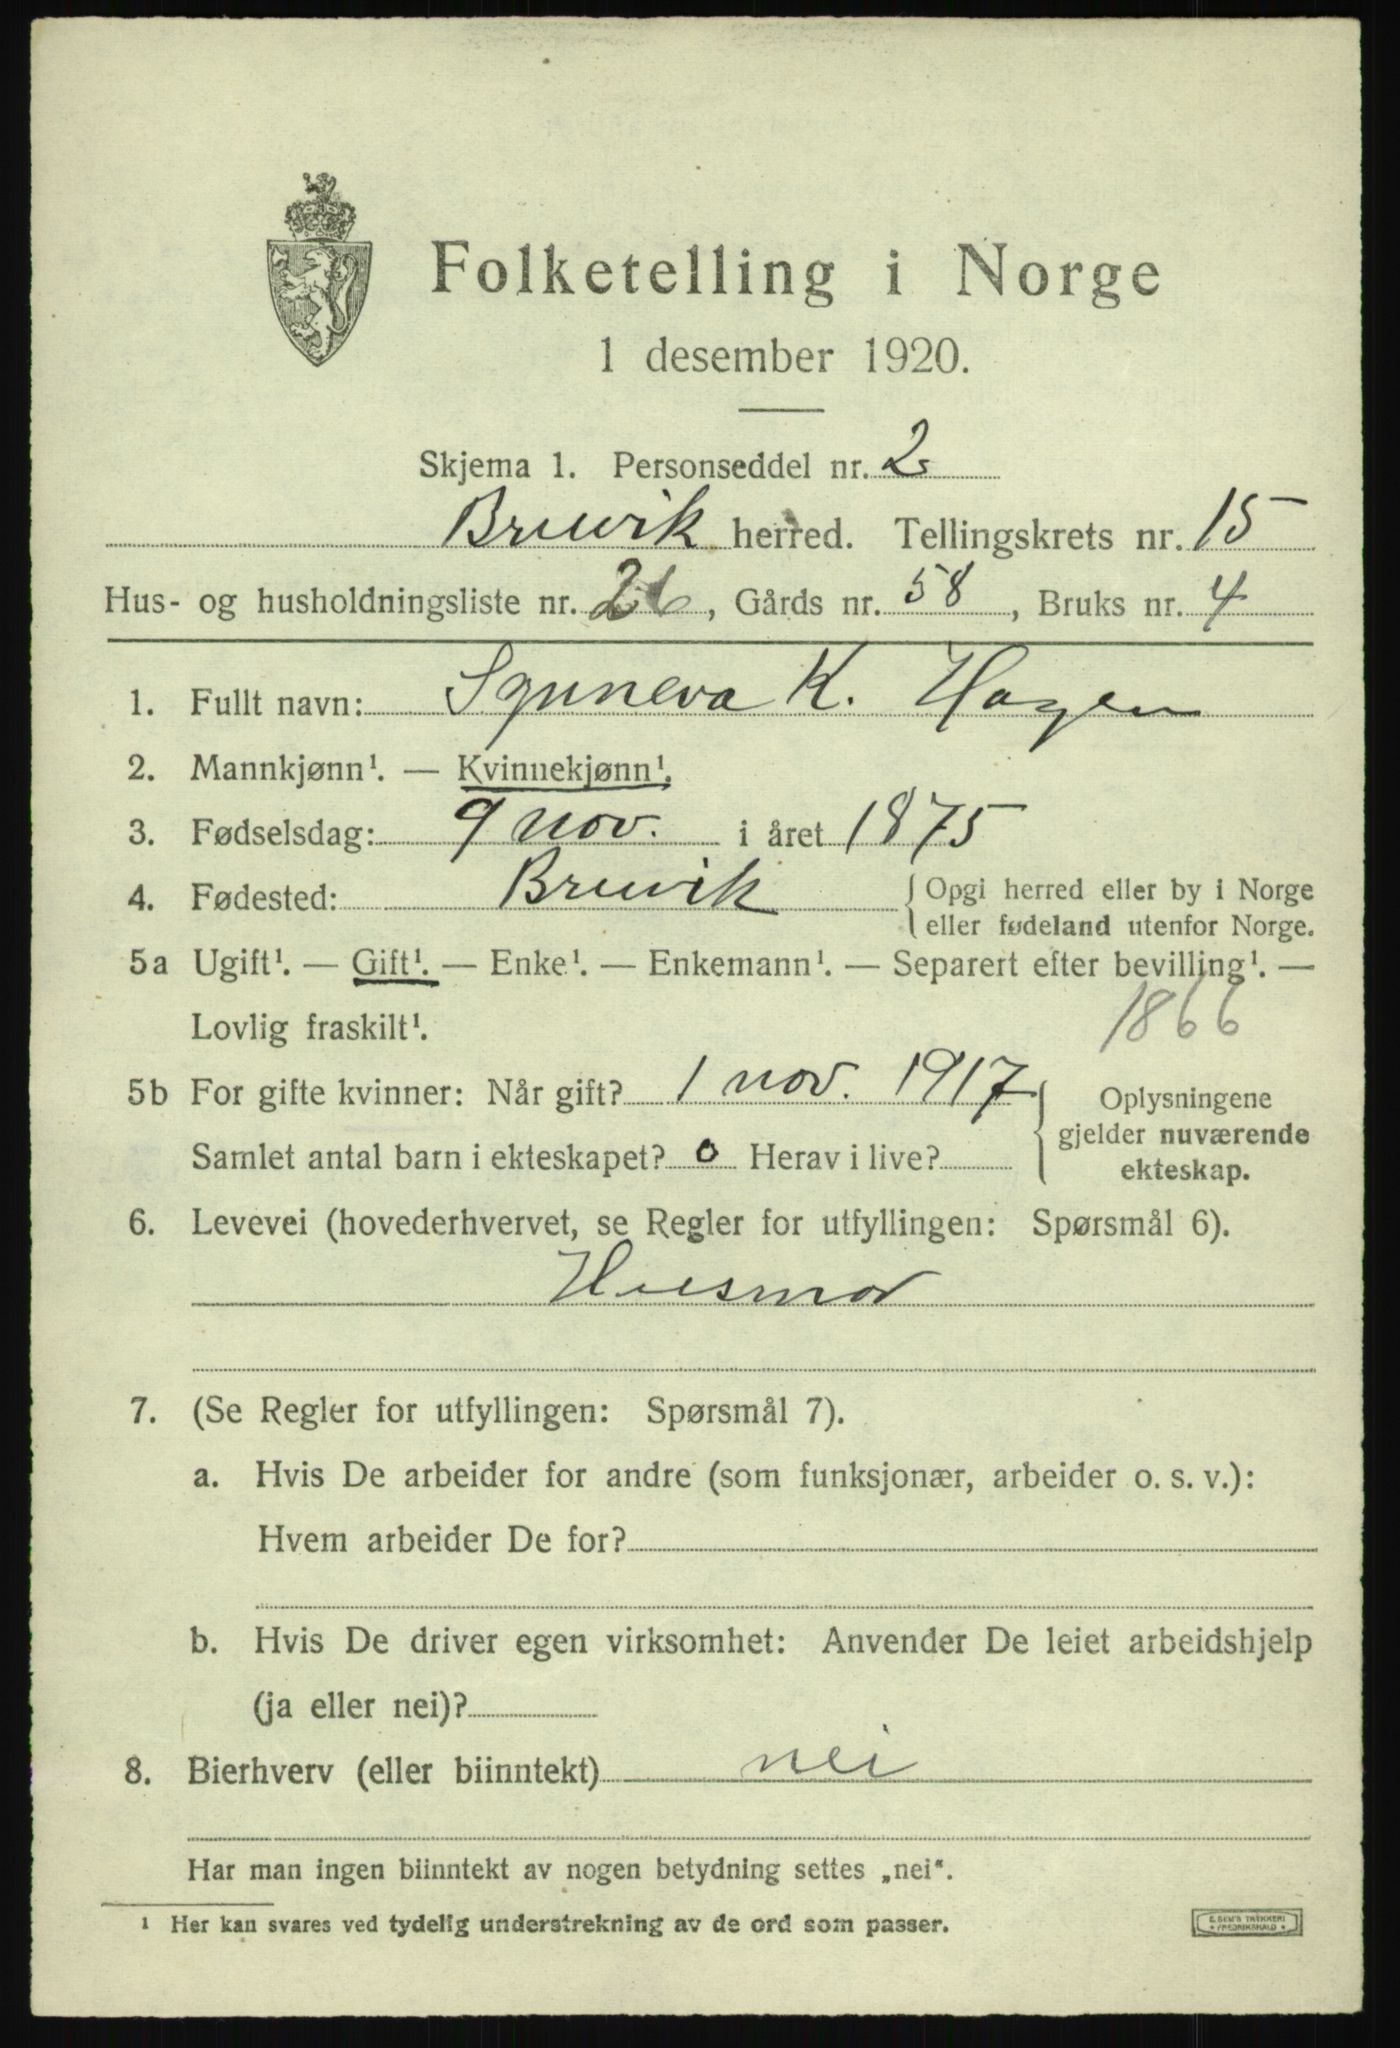 Folketelling i Norge
1 desember 1920.
Skjema 1. Personseddel nr. 2
Bruvik herred. Tellingskrets nr. 15
Hus- og husholdningsliste nr. 26, Gårds nr. 58, Bruks nr. 4
1. Fullt navn: Synneva K. Hagen
2. Mannkjønn¹. — Kvinnekjønn¹.
3. Fødselsdag: 9 nov. i året 1875
4. Fødested: Bruvik { Opgi herred eller by i Norge
eller fødeland utenfor Norge.
5a Ugift¹. — Gift¹. — Enke¹. — Enkemann¹. — Separert efter bevilling¹. —
Lovlig fraskilt¹. 1866
5b For gifte kvinner: Når gift? 1 nov. 1917 { Oplysningene
gjelder nuværende
Samlet antal barn i ekteskapet? 0 Herav i live?
ekteskap.
6. Levevei (hovederhvervet, se Regler for utfyllingen: Spørsmål 6).
Husmor
7. (Se Regler for utfyllingen: Spørsmål 7).
a. Hvis De arbeider for andre (som funksjonær, arbeider o. s. v.):
Hvem arbeider De for?
b. Hvis De driver egen virksomhet: Anvender De leiet arbeidshjelp
(ja eller nei)?
8. Bierhverv (eller biinntekt) nei
Har man ingen biinntekt av nogen betydning settes „nei“.
¹ Her kan svares ved tydelig understrekning av de ord som passer.
E. SEM'S TRYKKERI
* FREDRIKSHALD *